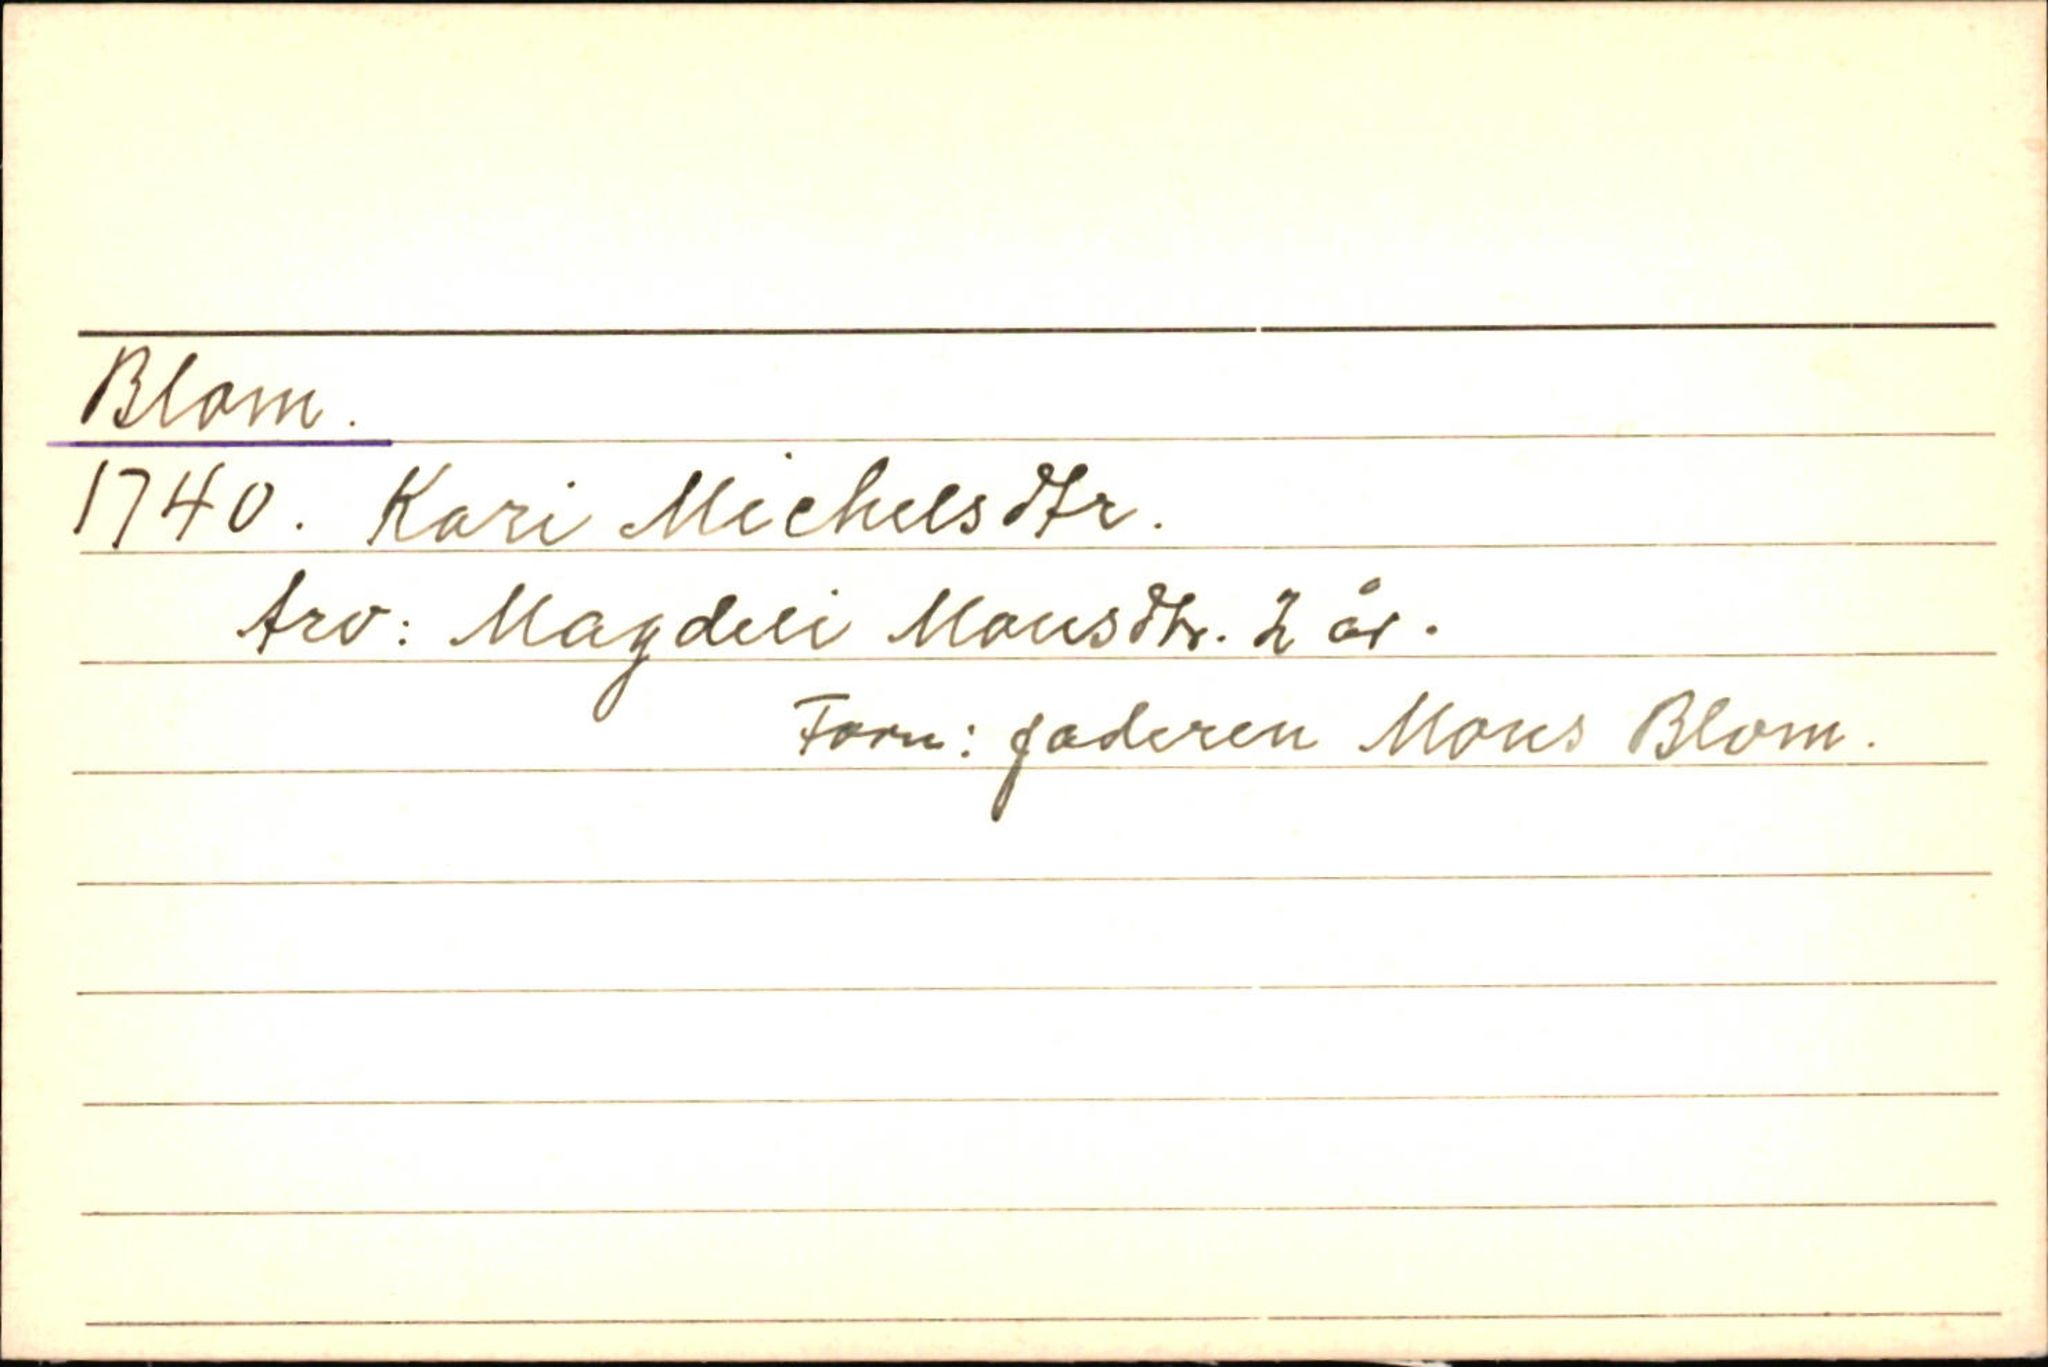 Blom.
1740. Kari Michelsdtr.
Arv: Magdeli Monsdtr. 2 år.
Form: faderen Mons Blom.